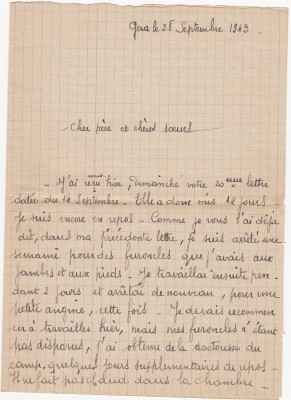 Gera le 28 Septembre 1943
Cher père et chères soeurs
- J'ai reçu hier, Dimanche votre 20ème lettre
datée du 14 Septembre - Elle a donc mis 12 jours -
Je suis encore en repos - Comme je vous l'ai déjà
dit, dans ma précédente lettre, je suis arrêté une
semaine pour des furoncles que j'avais aux
jambes et aux pieds - Je travaillai ensuite pen-
dant 2 jours et arrêtai de nouveau, pour une
petite angine, cette fois - Je devais recommen-
cer à travailler hier, mais mes furoncles n'étant
pas disparus, j'ai obtenu de la doctoresse du
camp, quelques jours supplémentaires de repos -
Il ne fait pas chaud dans la chambre -